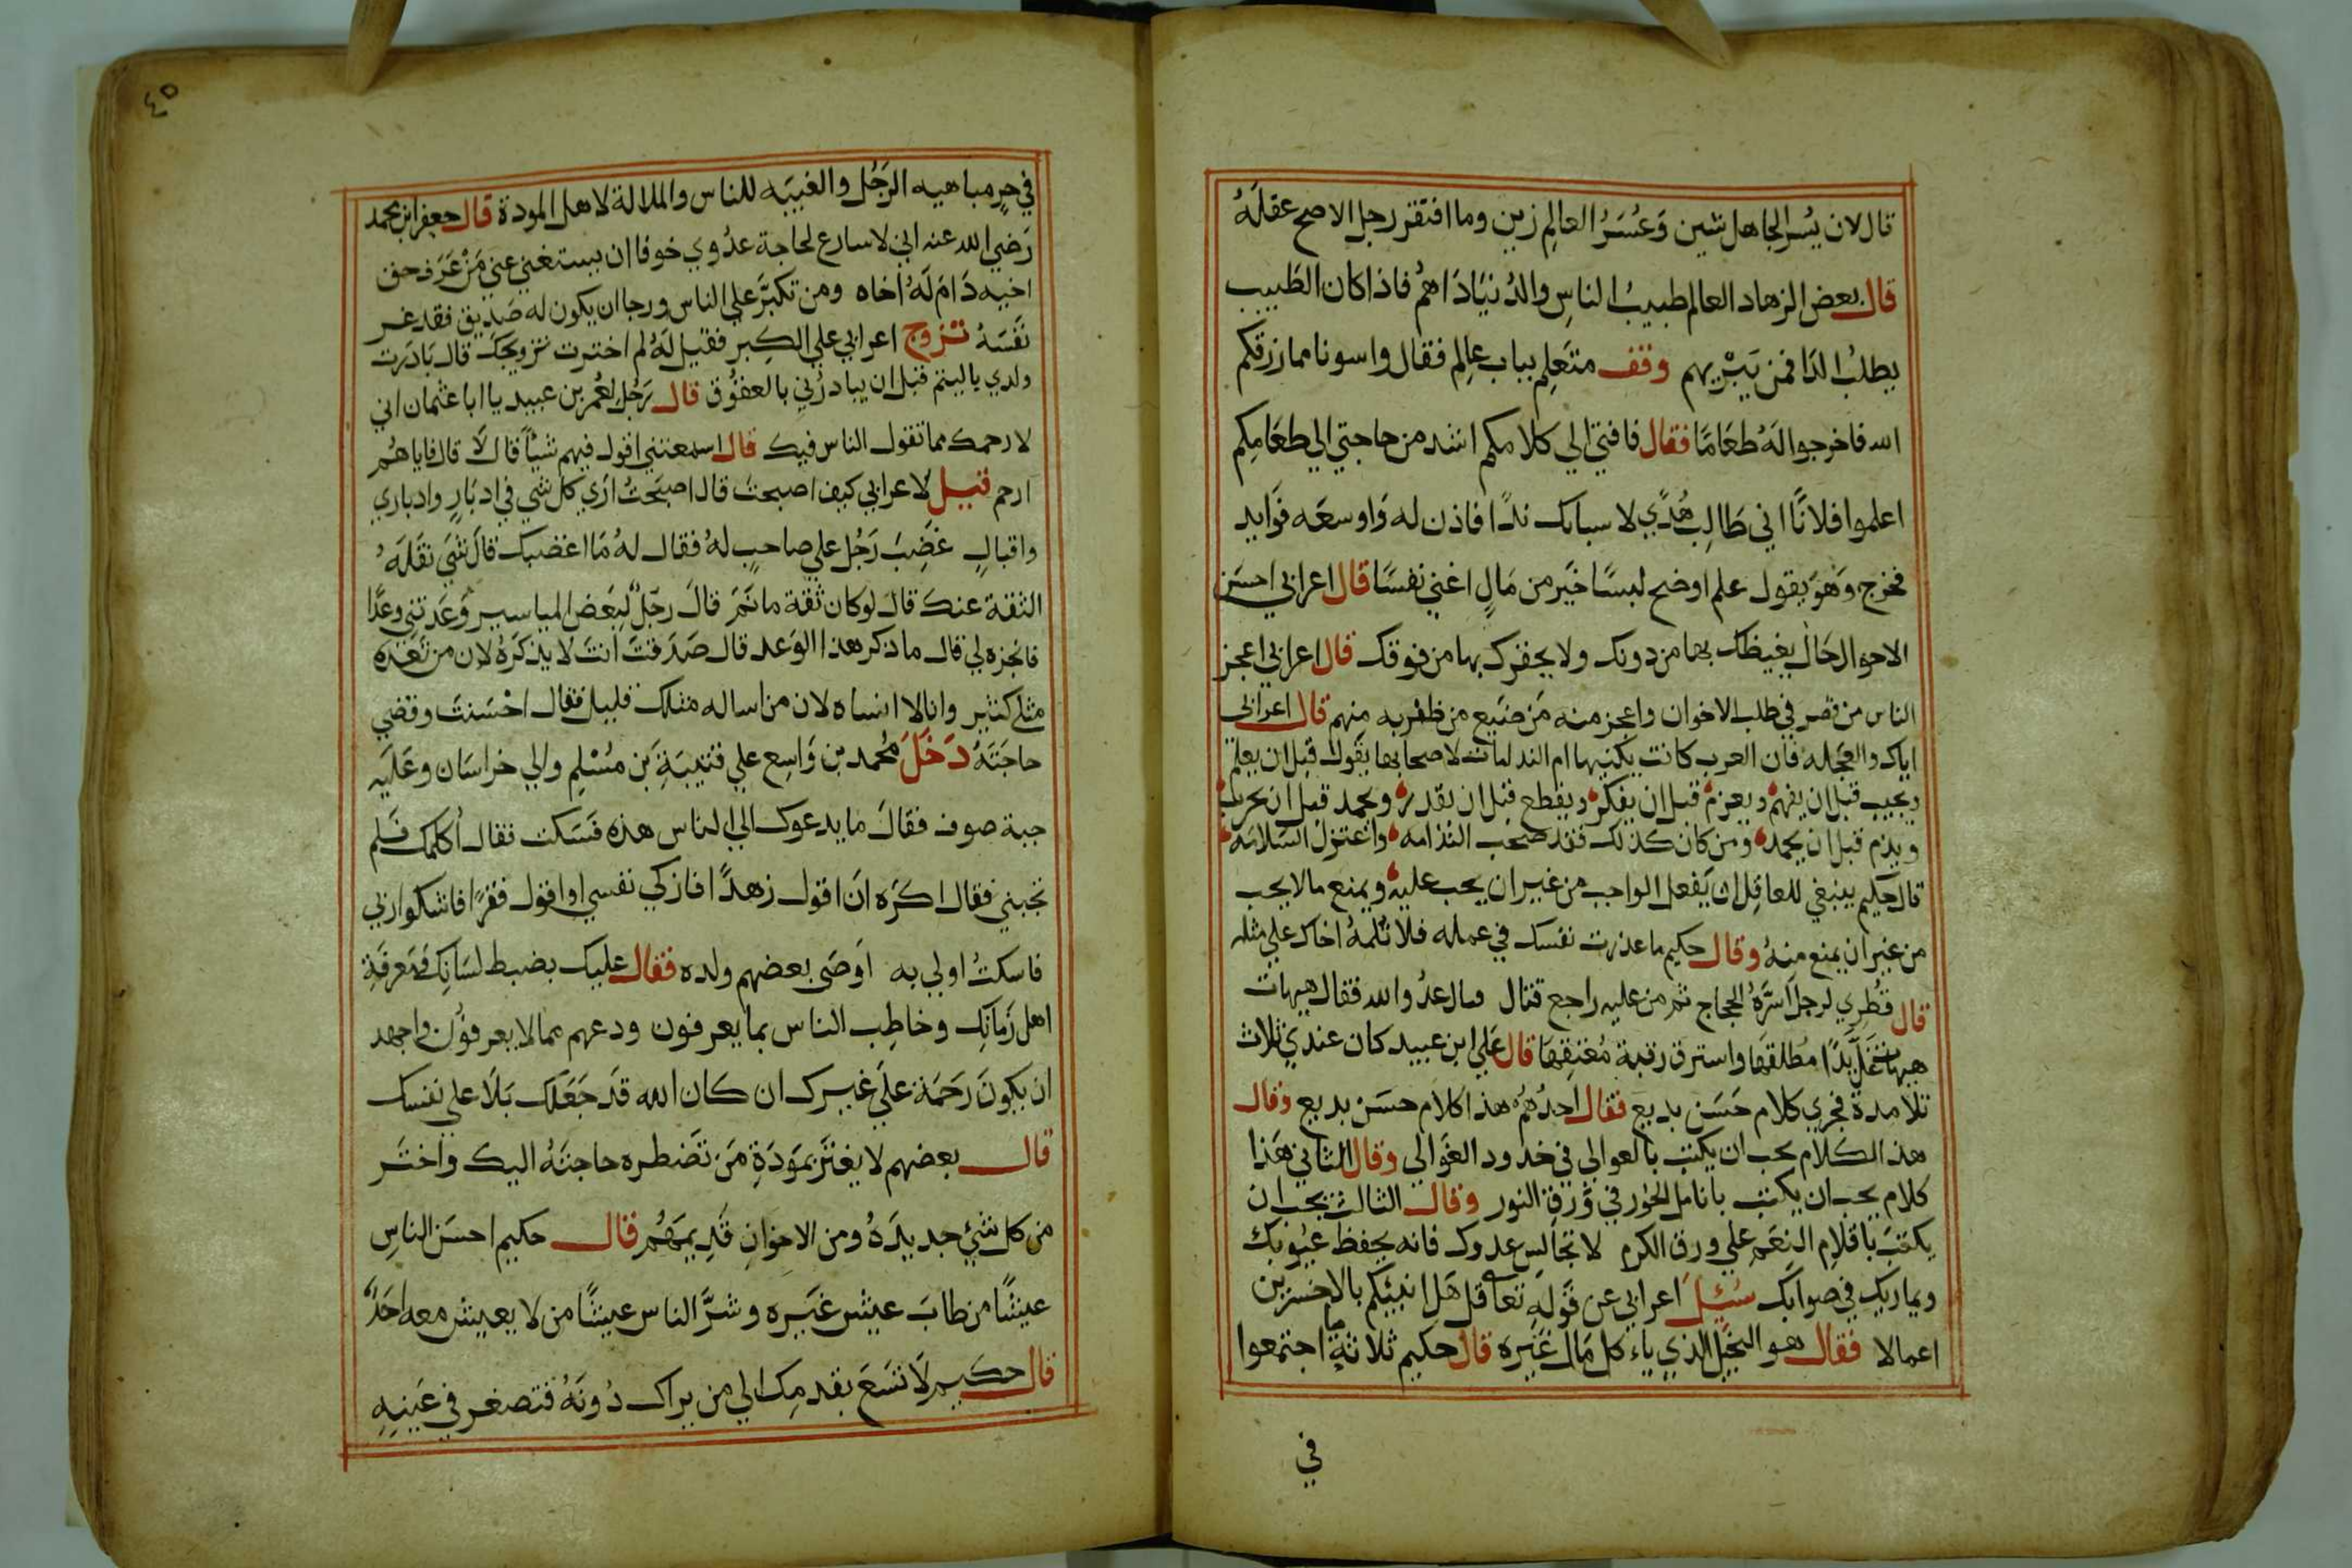 قال لان يُسر الجاهل شين وَعُسَرُ العالِم زين وما افتقر رجل الا صح عقلَهُ
قال بعض الزهاد العالم طبيبُ الناسِ والدُنيَا دَاهُم فاذا كان الطَبيب
يطلبُ الدَا فمن يَبْريهم وقف متَعلِم بباب عالِم فقال واسونا مما رزقكم
الله فاخرجوا لَهُ طعَامًا فقال فاقتي الي كلامكم اشد من حاجتي الي طعَامِكم
اعلموا فلانًا اني طَالِب هُدًي لا سبايك ندًا فاذن له وَاوسعَه فوَايد
فخرج وَهوَ يقول علم اوضح لبسًا خَير من مَالٍ اغني نفسًا قال اعرابي احسَن
الاحوال حَال يغيظك بها من دونك ولا يحقرك بها من فوقك قال اعرابي اعجز
الناس من قصر في طلب الاخوان واعجز منه مَن ضَيع من ظفر به منهم قال اعرابي
اياك والعجَله فان العرب كانت يكنيها ام الندامات لا صحابها يقول قبل ان يعلم
ويجيب قبل ان يفهم ويعزم قبل ان يفكر ويقطع قبل ان يقدر ويحمد قبل ان يجرب
ويذم قبل ان يحمد ومن كان كذلك فقد صحب النذامه واعتزل السَلامَه
قال حكيم ينبغي للعاقِل ان يَفعل الواجب من غير ان يجب عليه ويمنع مالا يجب
من غير ان يمنع منهُ وقال حكيم ما عذرت نفسك في عمله فلا تَلمهُ اخاك علي مثله
قال قُطرِي لرجل اسَرَهُ الحجاج ثم من عليه راجع قتال عدُو الله فقال هيهات
هيهات غَل يَدًا مُطلقهَا واسترق رقبة مُعتِقهَا قال عَلي ابن عبيد كان عندي ثلاث
تلامدة فجري كلام حَسَن بديع فقال احدُهُم هذا كلام حسَن بديع وقال
هذ الكلام يجب ان يكتب بالعوالي في خدود الغوَاني وقال الثاني هَذا
كلام يجب ان يكتب بانامل الحور في وَرقة النور وقال الثالث يجب ان
يكتبَ باقلام النِعَم علي ورق الكرم لا تجالِس عدوك فانه يحفظ عيُوبك
ويماريك في صوابك سُئِلَ اعرابي عن قَولهِ تعا قل هَل انبيئكم بالاخسرين
اعمالا فقال هو البخَيل الذي ياء كل مَال غيَره قال حكيم ثلاثة ما اجتمعوا
في
٤٥
في حرٍ مباهيه الرَجُل والغيبَه للناس والملالة لاهل المودة قال جعفر ابن محمد
رَضي الله عنه اني لا سارع لحاجة عدُوي خوفا ان يستغني عني مَنْ عَرَف حق
اخيه دَامَ لَهُ اخاه ومن تكبَّر علي الناس ورجا ان يكون له صَدِيق فقد غر
نَفسَهُ تَزوج اعرابي علي الكِبر فقيل لَهُ لم اخترت تزويجكَ قال بَادَرت
ولدي باليتم قبل ان يبادرُني بالعقوُق قال رَجُل لعُمر بن عبيد يا ابا عثمان اني
لارحمك مما تقول الناس فيك قال اسمعتني اقول فيهم شيًا قال لا قال فاياهُم
ارحم قيل لاعرابي كيف اصبحتَ قال اصبَحتُ ارَي كل شي في ادبَارٍ وادباري
واقبالٍ غضِبَ رَجُل علي صاحبٍ لهُ فقال لهُ مَا اغضبك قال شَي نقَلَهُ
الثقة عنكَ قال لو كان ثقة ما نَمَّ قالَ رجّل لبَعض المياسير وَعَدتني وعدًا
فانجزه لي قال ما ذكر هذا الوَعد قال صَدَقتَ انتَ لا يذكرَهُ لان من تَعده
مثلي كثير وانا لا انساه لان من اساله مثلك قليل فقال احْسَنتَ وقضي
حاجَتَهُ دَخَلَ مُحمد بن وَاسِع علي قتيبَةِ بَن مُسْلمِ والي خراسَان وعَلَيه
جبة صوف فقالَ ما يدعوك الي الناس هذه فسَكت فقال اُكلمك فَلم
تجبني فقال اكرَه انَ اقول زهدًا فازكي نفسي او اقول فقرًا فاشكوا ربي
فاسكتُ اولي به اَوصَى بعضهم ولده فقال عليك بضبط لسَانِك وَمَعرفَةِ
اهل زَمانِك وخاطِب الناس بما يعرفون ودعهم مما لا يعرفوُن واجهد
ان يكونَ رَحمَة علَي غيرك ان كان الله قَد جَعَلك بَلَا علي نفسك
قال بعضهم لا يغترَ بمَودَةِ مَن تَضطره حاجتَهُ اليك واختَر
من كل شيُ جديدَهُ ومن الاخوَانِ قدِيمَهُم قال حكيم احسَن الناسِ
عيشًا من طابَ عيش غَيَره وشرَّ الناس عيشًا من لَا يعيش معه احَدٌ
قال حكيم لَا تسَعَ بقدمِك الي من يراك دُونَهُ فتصغر في عَينِهِ